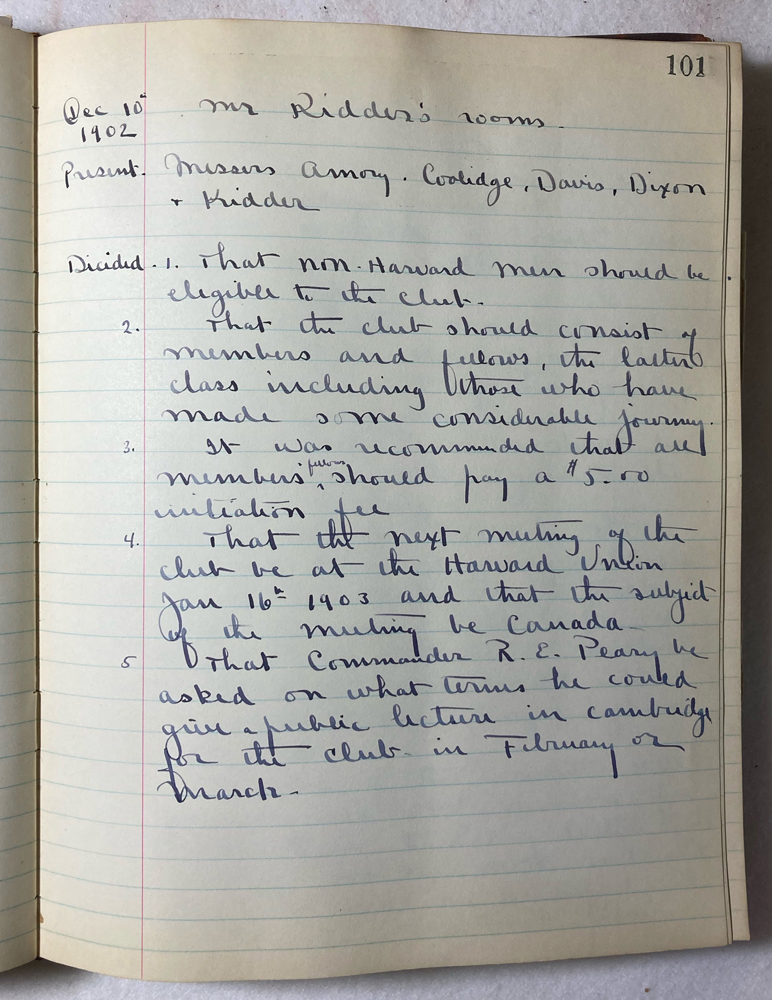 101
Dec 10th Mr Kidder's rooms.
1902
Present. Messers Amory. Coolidge, Davis, Dixon
+ Kidder
Decided. 1. That non-Harvard men should be
eligible to the club.
2. That the club should consist of
members and fellows, the latter
class including those who have
made some considerable journey.
3. It was recommended that all
members fellows should pay a $5.00
initiation fee
4. That the next meeting of the
club be at the Harvard Union
Jan 16th 1903 and that the subject
of the meeting be Canada
5 That Commander R. E. Peary be
asked on what terms he could
give a public lecture in Cambridge
for the club in February or
March.